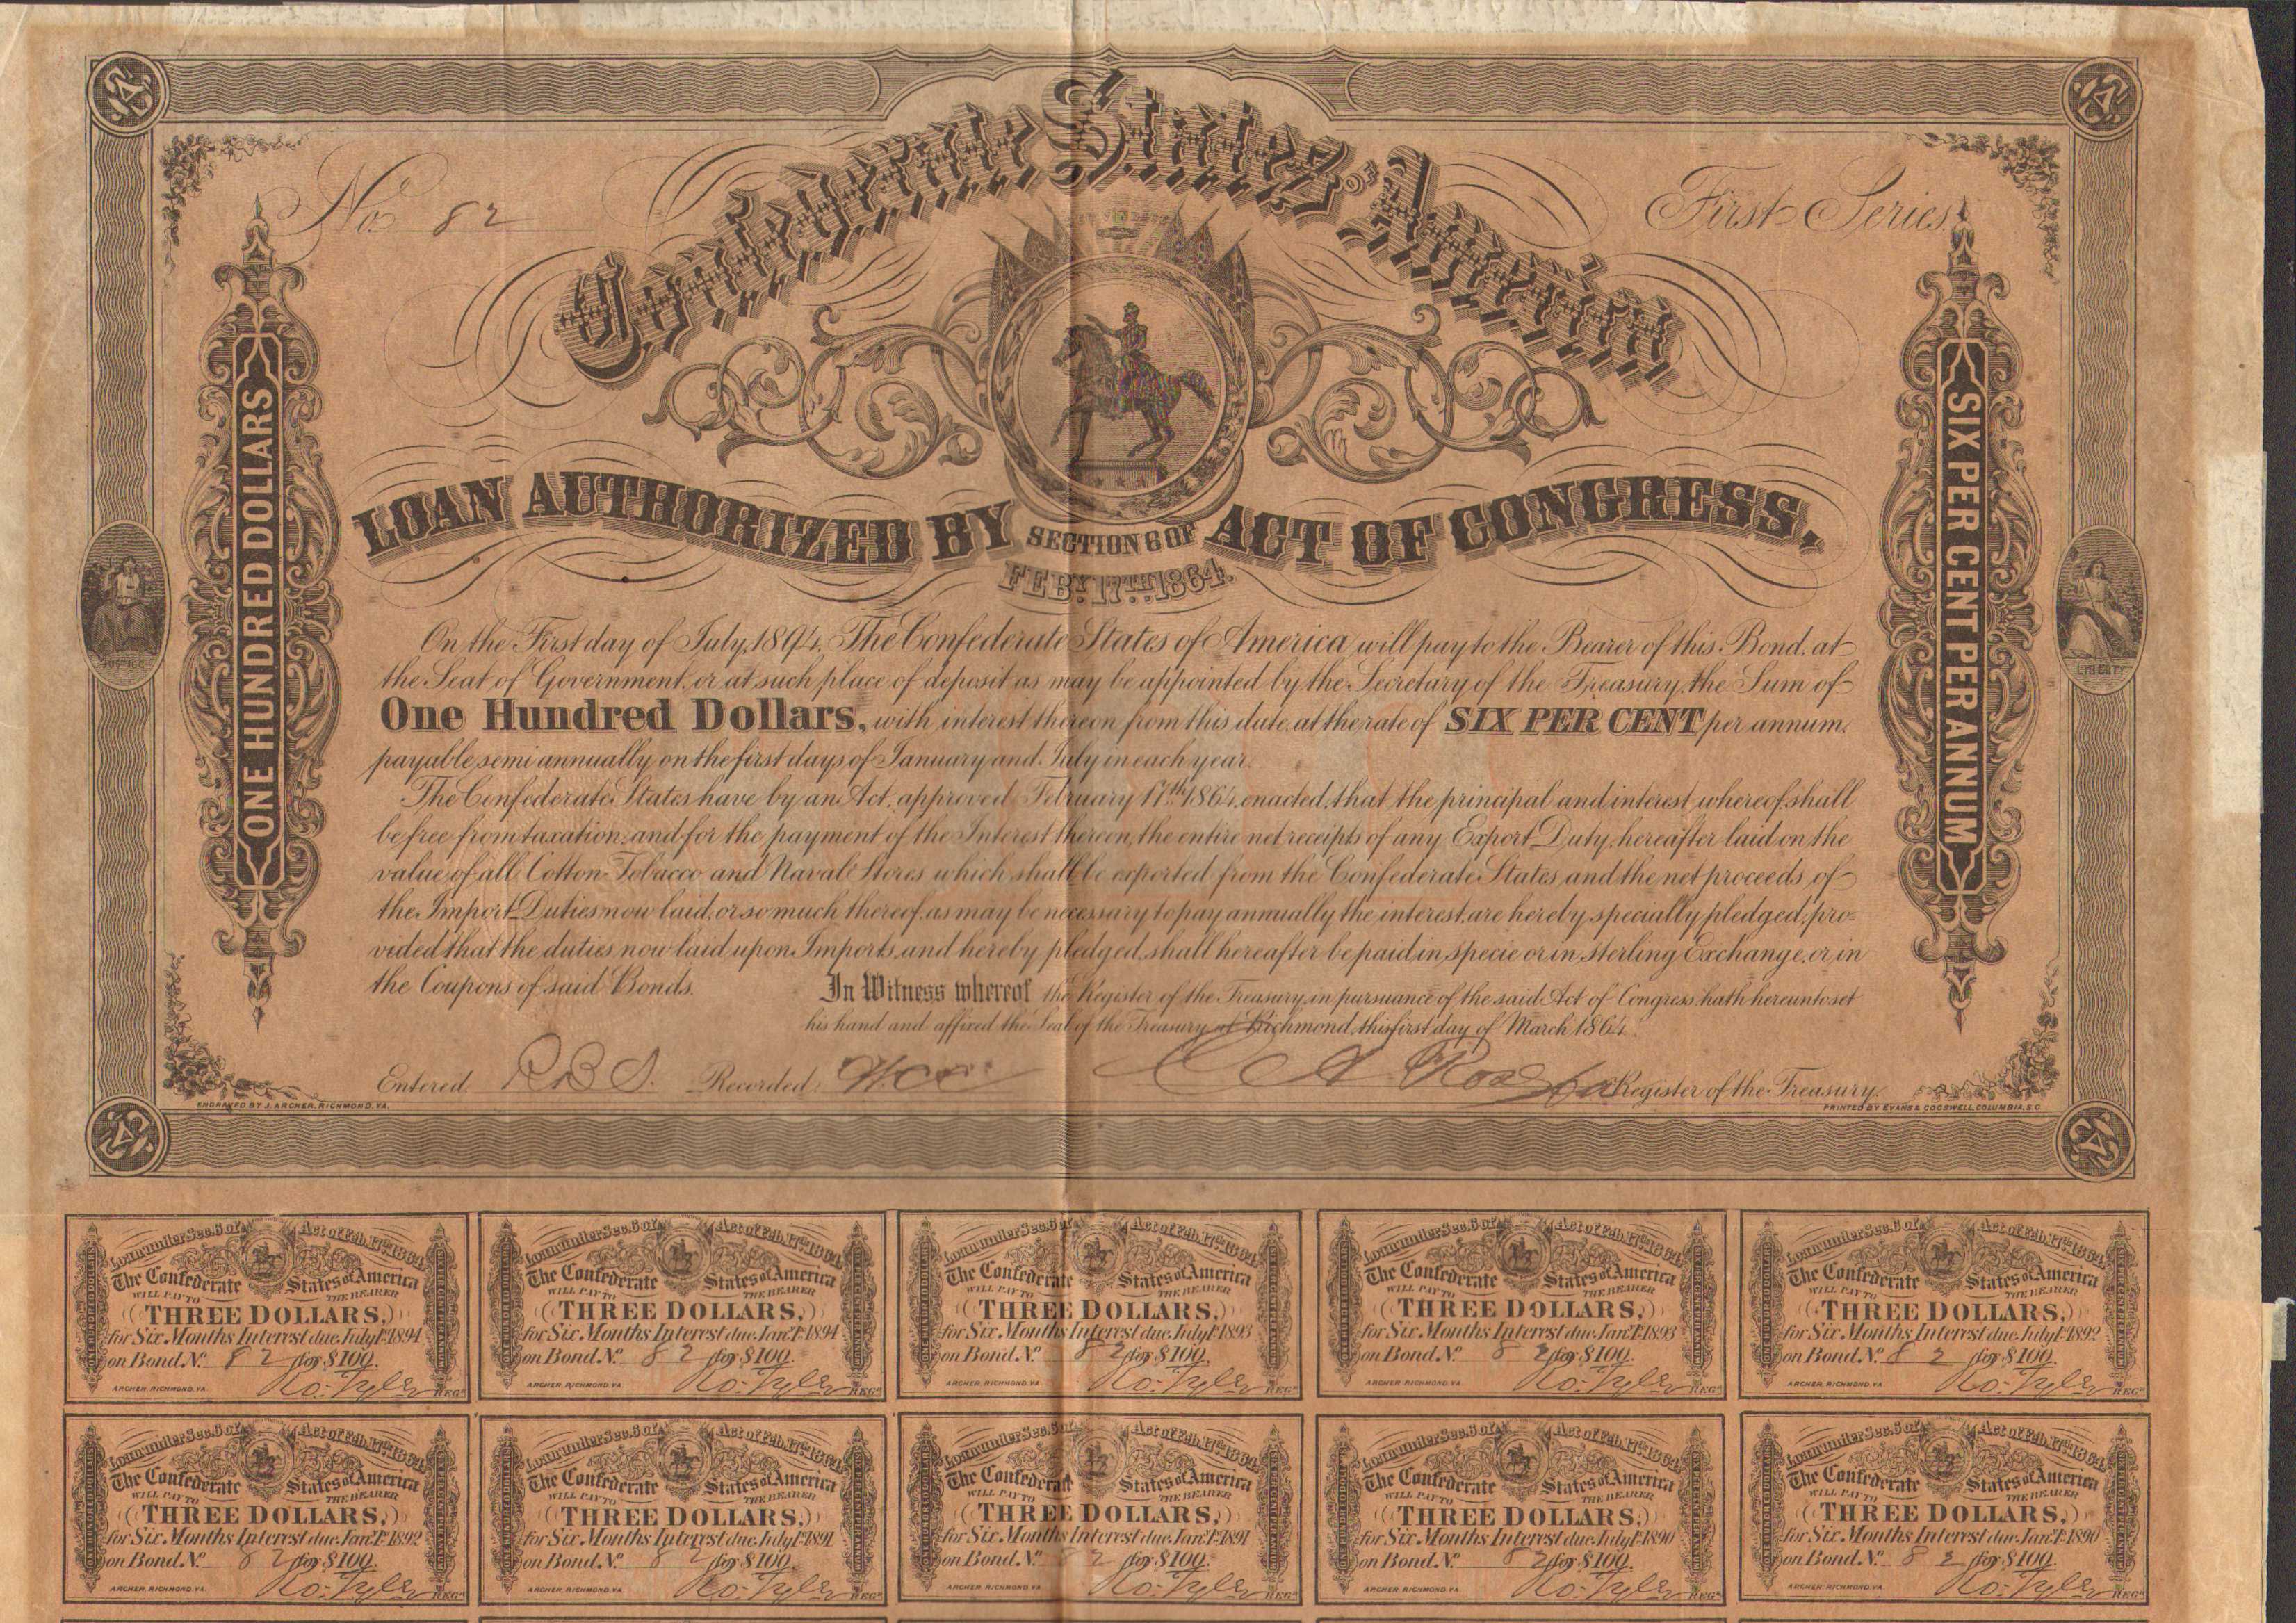 No. 82
Confederate States OF America
First Series.
ONE HUNDRED DOLLARS
SIX PER CENT PER ANNUM
JUSTICE
LIBERTY
LOAN AUTHORIZED BY SECTION 6 OF ACT OF CONGRESS,
FEBY. 17TH. 1864.
On the First day of July, 1894, The Confederate States of America will pay to the Bearer of this Bond, at
the Seat of Government, or at such place of deposit as may be appointed by the Secretary of the Treasury, the Sum of
One Hundred Dollars, with interest thereon from this date, at the rate of SIX PER CENT per annum,
payable semi annually on the first days of January and July in each year.
The Confederate States have by an Act, approved February 17th 1864, enacted, that the principal and interest whereof shall
be free from taxation; and for the payment of the Interest thereon, the entire net receipts of any Export Duty, hereafter laid on the
value of all Cotton Tobacco and Naval Stores which shall be exported from the Confederate States, and the net proceeds of
the Import Duties now laid, or so much thereof, as may be necessary to pay annually the interest, are hereby specially pledged; pro-
vided that the duties now laid upon Imports, and hereby pledged, shall hereafter be paid in specie or in Sterling Exchange, or in
the Coupons of said Bonds.
In Witness whereof the Register of the Treasury, in pursuance of the said Act of Congress, hath hereunto set
his hand and affixed the Seal of the Treasury at Richmond, this first day of March 1864.
Entered R.B.S. Recorded C A Rose Register of the Treasury
ENGRAVED BY J. ARCHER, RICHMOND, VA.
PRINTED BY EVANS & COGSWELL, COLUMBIA, S.C.
Loan under Sec. 6 of Act of Feb. 17th 1864.
The Confederate States of America
WILL PAY TO THE BEARER
THREE DOLLARS,
for Six Months Interest due July 1st 1894
on Bond No. 82 for $100.
Ro: Tyler REGR.
ARCHER, RICHMOND, VA
Loan under Sec. 6 of Act of Feb. 17th 1864.
The Confederate States of America
WILL PAY TO THE BEARER
THREE DOLLARS,
for Six Months Interest due Jany. 1st 1894
on Bond No. 82 for $100.
Ro: Tyler REGR.
ARCHER, RICHMOND, VA
Loan under Sec. 6 of Act of Feb. 17th 1864.
The Confederate States of America
WILL PAY TO THE BEARER
THREE DOLLARS,
for Six Months Interest due July 1st 1893
on Bond No. 82 for $100.
Ro: Tyler REGR.
ARCHER, RICHMOND, VA
Loan under Sec. 6 of Act of Feb. 17th 1864.
The Confederate States of America
WILL PAY TO THE BEARER
THREE DOLLARS,
for Six Months Interest due Jany. 1st 1893
on Bond No. 82 for $100.
Ro: Tyler REGR.
ARCHER, RICHMOND, VA
Loan under Sec. 6 of Act of Feb. 17th 1864.
The Confederate States of America
WILL PAY TO THE BEARER
THREE DOLLARS,
for Six Months Interest due July 1st 1892
on Bond No. 82 for $100.
Ro: Tyler REGR.
ARCHER, RICHMOND, VA
Loan under Sec. 6 of Act of Feb. 17th 1864.
The Confederate States of America
WILL PAY TO THE BEARER
THREE DOLLARS,
for Six Months Interest due Jany. 1st 1892
on Bond No. 82 for $100.
Ro: Tyler REGR.
ARCHER, RICHMOND, VA
Loan under Sec. 6 of Act of Feb. 17th 1864.
The Confederate States of America
WILL PAY TO THE BEARER
THREE DOLLARS,
for Six Months Interest due July 1st 1891
on Bond No. 82 for $100.
Ro: Tyler REGR.
ARCHER, RICHMOND, VA
Loan under Sec. 6 of Act of Feb. 17th 1864.
The Confederate States of America
WILL PAY TO THE BEARER
THREE DOLLARS,
for Six Months Interest due Jany. 1st 1891
on Bond No. 82 for $100.
Ro: Tyler REGR.
ARCHER, RICHMOND, VA
Loan under Sec. 6 of Act of Feb. 17th 1864.
The Confederate States of America
WILL PAY TO THE BEARER
THREE DOLLARS,
for Six Months Interest due July 1st 1890
on Bond No. 82 for $100.
Ro: Tyler REGR.
ARCHER, RICHMOND, VA
Loan under Sec. 6 of Act of Feb. 17th 1864.
The Confederate States of America
WILL PAY TO THE BEARER
THREE DOLLARS,
for Six Months Interest due Jany. 1st 1890
on Bond No. 82 for $100.
Ro: Tyler REGR.
ARCHER, RICHMOND, VA